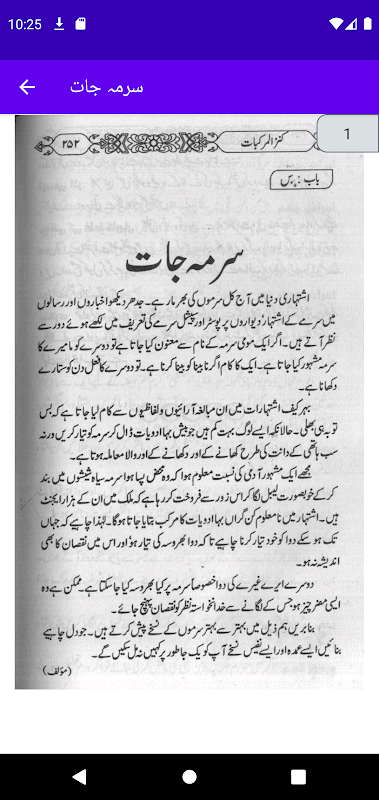 10:25
سرمہ جات
1
کنز المرکبات
۲۵۲
باب : س
سرمہ جات
اشتہاری دنیا میں آج کل سرموں کی بھرمار ہے۔ جدھر دیکھو اخباروں اور رسالوں
میں سرمے کے اشتہار دیواروں پر پوسٹر اور سپیشل سرمے کی تعریف میں لکھے ہوئے دور سے
نظر آتے ہیں۔ اگر ایک موتی سرمہ کے نام سے معنون کیا جاتا ہے تو دوسرے کو مامیرے کا
سرمہ مشہور کیا جاتا ہے۔ ایک کا کام اگر نابینا کو بینا کرنا ہے۔ تو دوسرے کا فعل دن کو ستارے
دکھانا ہے۔
بہر کیف اشتہارات میں ان مبالغہ آرائیوں و لفاظیوں سے کام لیا جاتا ہے کہ بس
توبہ ہی بھلی۔ حالانکہ ایسے لوگ بہت کم ہیں جو بیش بہا ادویات ڈال کر سرمہ کو تیار کریں ورنہ
سب ہاتھی کے دانت کی طرح کھانے کے اور دکھانے کے اور والا معاملہ ہوتا ہے۔
مجھے ایک مشہور آدمی کی نسبت معلوم ہوا کہ وہ محض پسا ہوا سرمہ سیاہ شیشوں میں بند
کر کے خوبصورت لیبل لگا کر اس زور سے فروخت کر رہا ہے کہ ملک میں ان کے ہزارہا ایجنٹ
ہیں۔ اشتہار میں نا معلوم کن گراں بہا ادویات کا مرکب بتایا جاتا ہوگا۔ لہٰذا چاہیے کہ جہاں
تک ہو سکے دوا کو خود تیار کرنا چاہیے تاکہ دوا بھروسہ کی تیار ہو اور اس میں نقصان کا بھی
اندیشہ نہ ہو۔
دوسرے ایرے غیرے کی دوا خصوصاً سرمہ پر کیا بھروسہ کیا جا سکتا ہے۔ ممکن ہے وہ
ایسی مضر چیز ہو جس کے لگانے سے خدانخواستہ نظر کو نقصان پہنچ جائے۔
بنا بریں ہم ذیل میں بہتر سے بہتر سرموں کے نسخے پیش کرتے ہیں۔ جو دل چاہے
بنائیں ایسے عمدہ اور ایسے نفیس نسخے آپ کو یک جا طور پر کہیں نہ مل سکیں گے۔
(مؤلف)